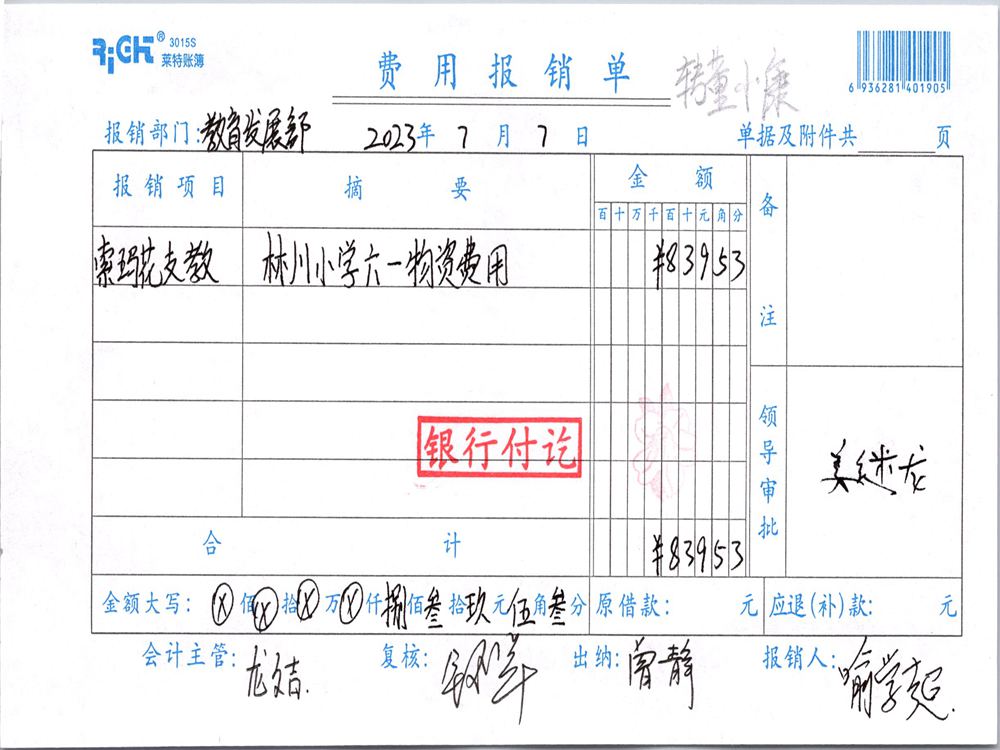 RiCH® 3015S 莱特账簿
费用报销单
转童小康
6 936281 401905
报销部门:教育发展部 2023年7月7日 单据及附件共 页
报销项目 摘要 金额 备注
百十万千百十元角分
索玛花支教 林川小学六一物资费用 ¥83953
银行付讫
领导审批 姜继龙
合计 ¥83953
金额大写:ⓧ佰ⓧ拾ⓧ万ⓧ仟捌佰叁拾玖元伍角叁分 原借款: 元 应退(补)款: 元
会计主管:龙文吉 复核: 出纳:曾静 报销人:喻学超